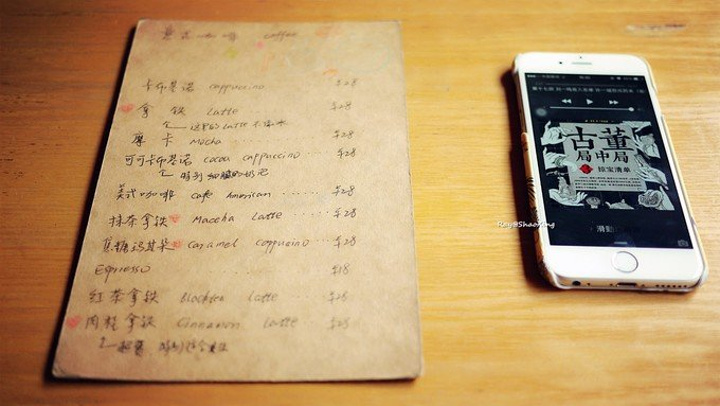 意式咖啡 coffee
卡布基诺 cappuccino ¥28
拿铁 Latte ¥28
这里的Latte不
摩卡 Mocha ¥28
可可卡布基诺 cocoa cappuccino ¥28
特别细腻的奶泡
美式咖啡 cafe American ...... ¥28
抹茶拿铁 Maccha Latte ... ¥28
焦糖玛其朵 caramel cappucino ... ¥28
Espresso ¥18
红茶拿铁 Blacktea Latte ... ¥28
肉桂拿铁 Cinnamon Latte ... ¥28
特别
古董
局中局
掠宝清单
滑動
Ray@Shaofeng